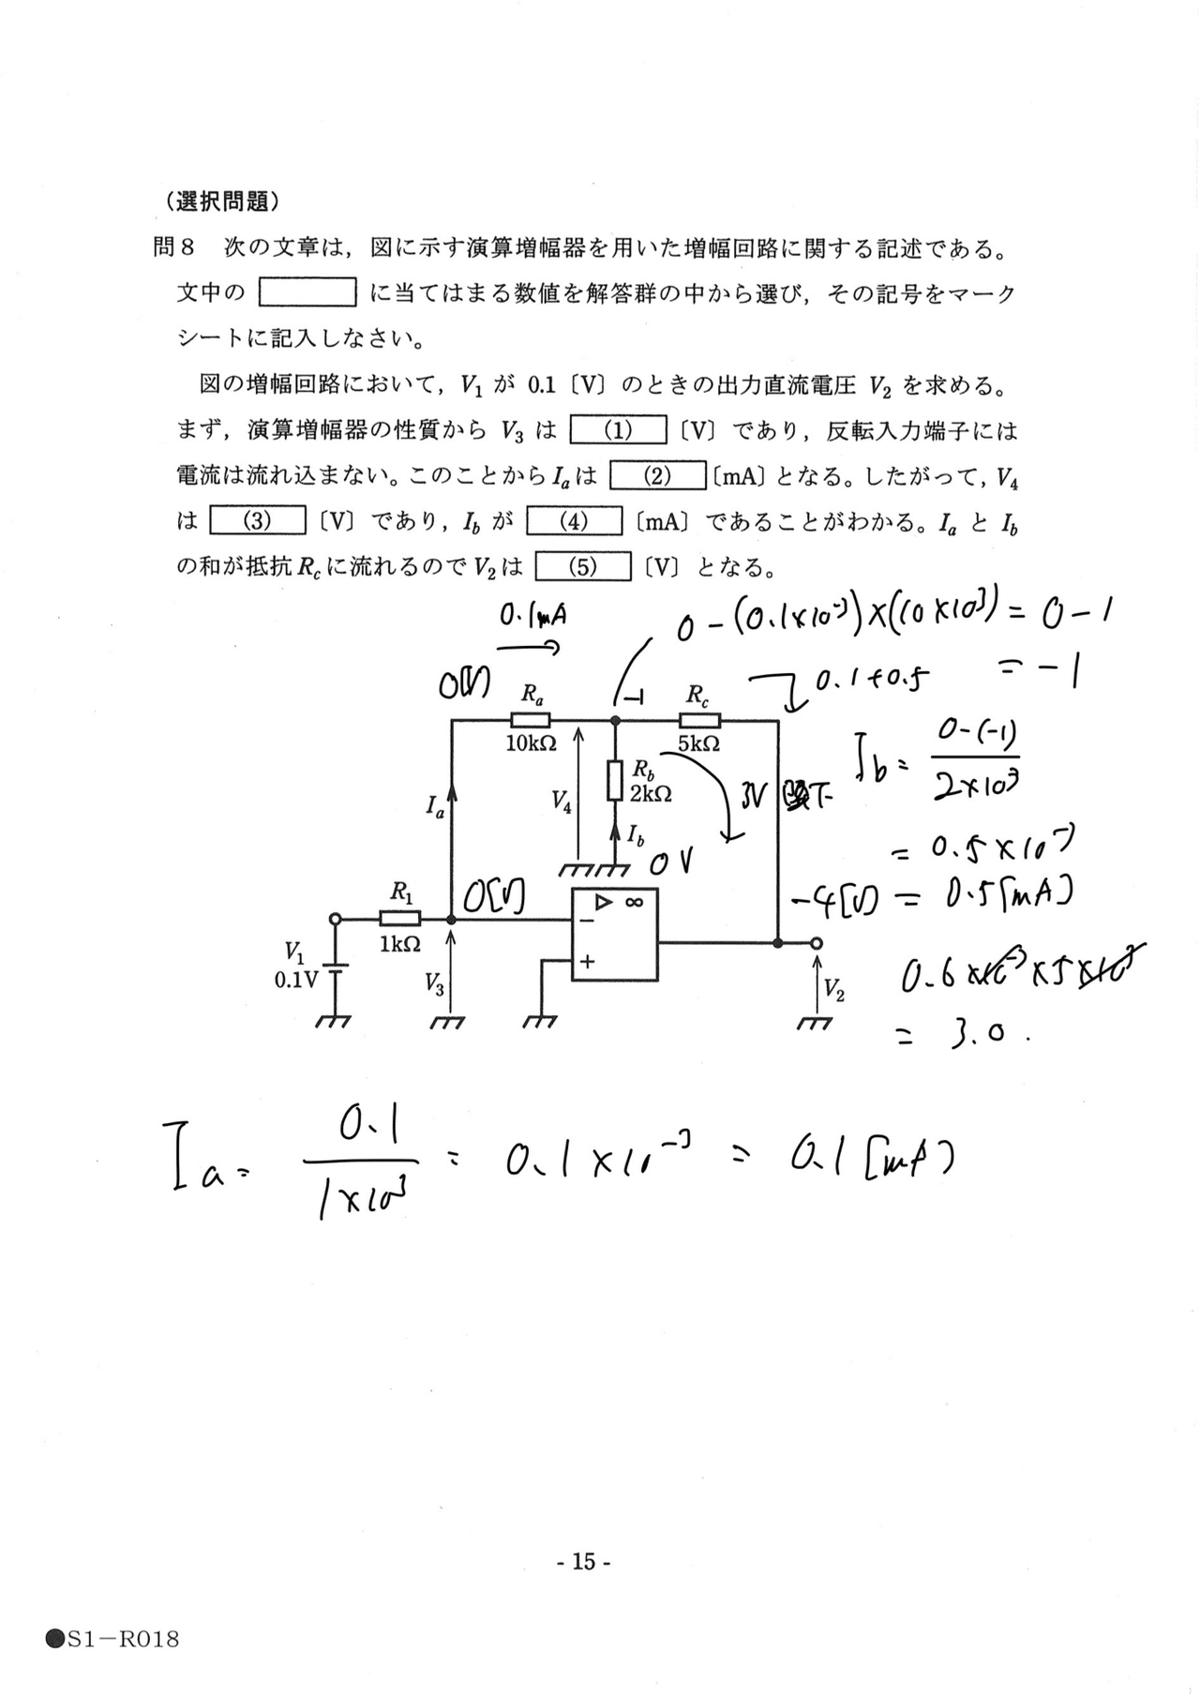 （選択問題）
問８　次の文章は，図に示す演算増幅器を用いた増幅回路に関する記述である。
文中の　　　　に当てはまる数値を解答群の中から選び，その記号をマーク
シートに記入しなさい。
図の増幅回路において，V₁ が 0.1〔V〕のときの出力直流電圧 V₂ を求める。
まず，演算増幅器の性質から V₃ は (1) 〔V〕であり，反転入力端子には
電流は流れ込まない。このことから Iₐ は (2) 〔mA〕となる。したがって，V₄
は (3) 〔V〕であり，I_b が (4) 〔mA〕であることがわかる。Iₐ と I_b
の和が抵抗 R_c に流れるので V₂ は (5) 〔V〕となる。
0.1mA
0-(0.1×10⁻³)×(10×10³)=0-1
=-1
0[V]
Rₐ
10kΩ
-1
R_c
5kΩ
0.1+0.5
I_b= 0-(-1) / 2×10³
R_b
2kΩ
V₄
Iₐ
I_b
3V 下
0V
=0.5×10⁻³
=0.5[mA]
-4[V]
R₁
1kΩ
0[V]
▷ ∞
−
+
V₁
0.1V
V₃
V₂
0.6×10⁻³×5×10³
=3.0.
Iₐ= 0.1 / 1×10³ = 0.1×10⁻³ = 0.1[mA]
- 15 -
●S1－R018